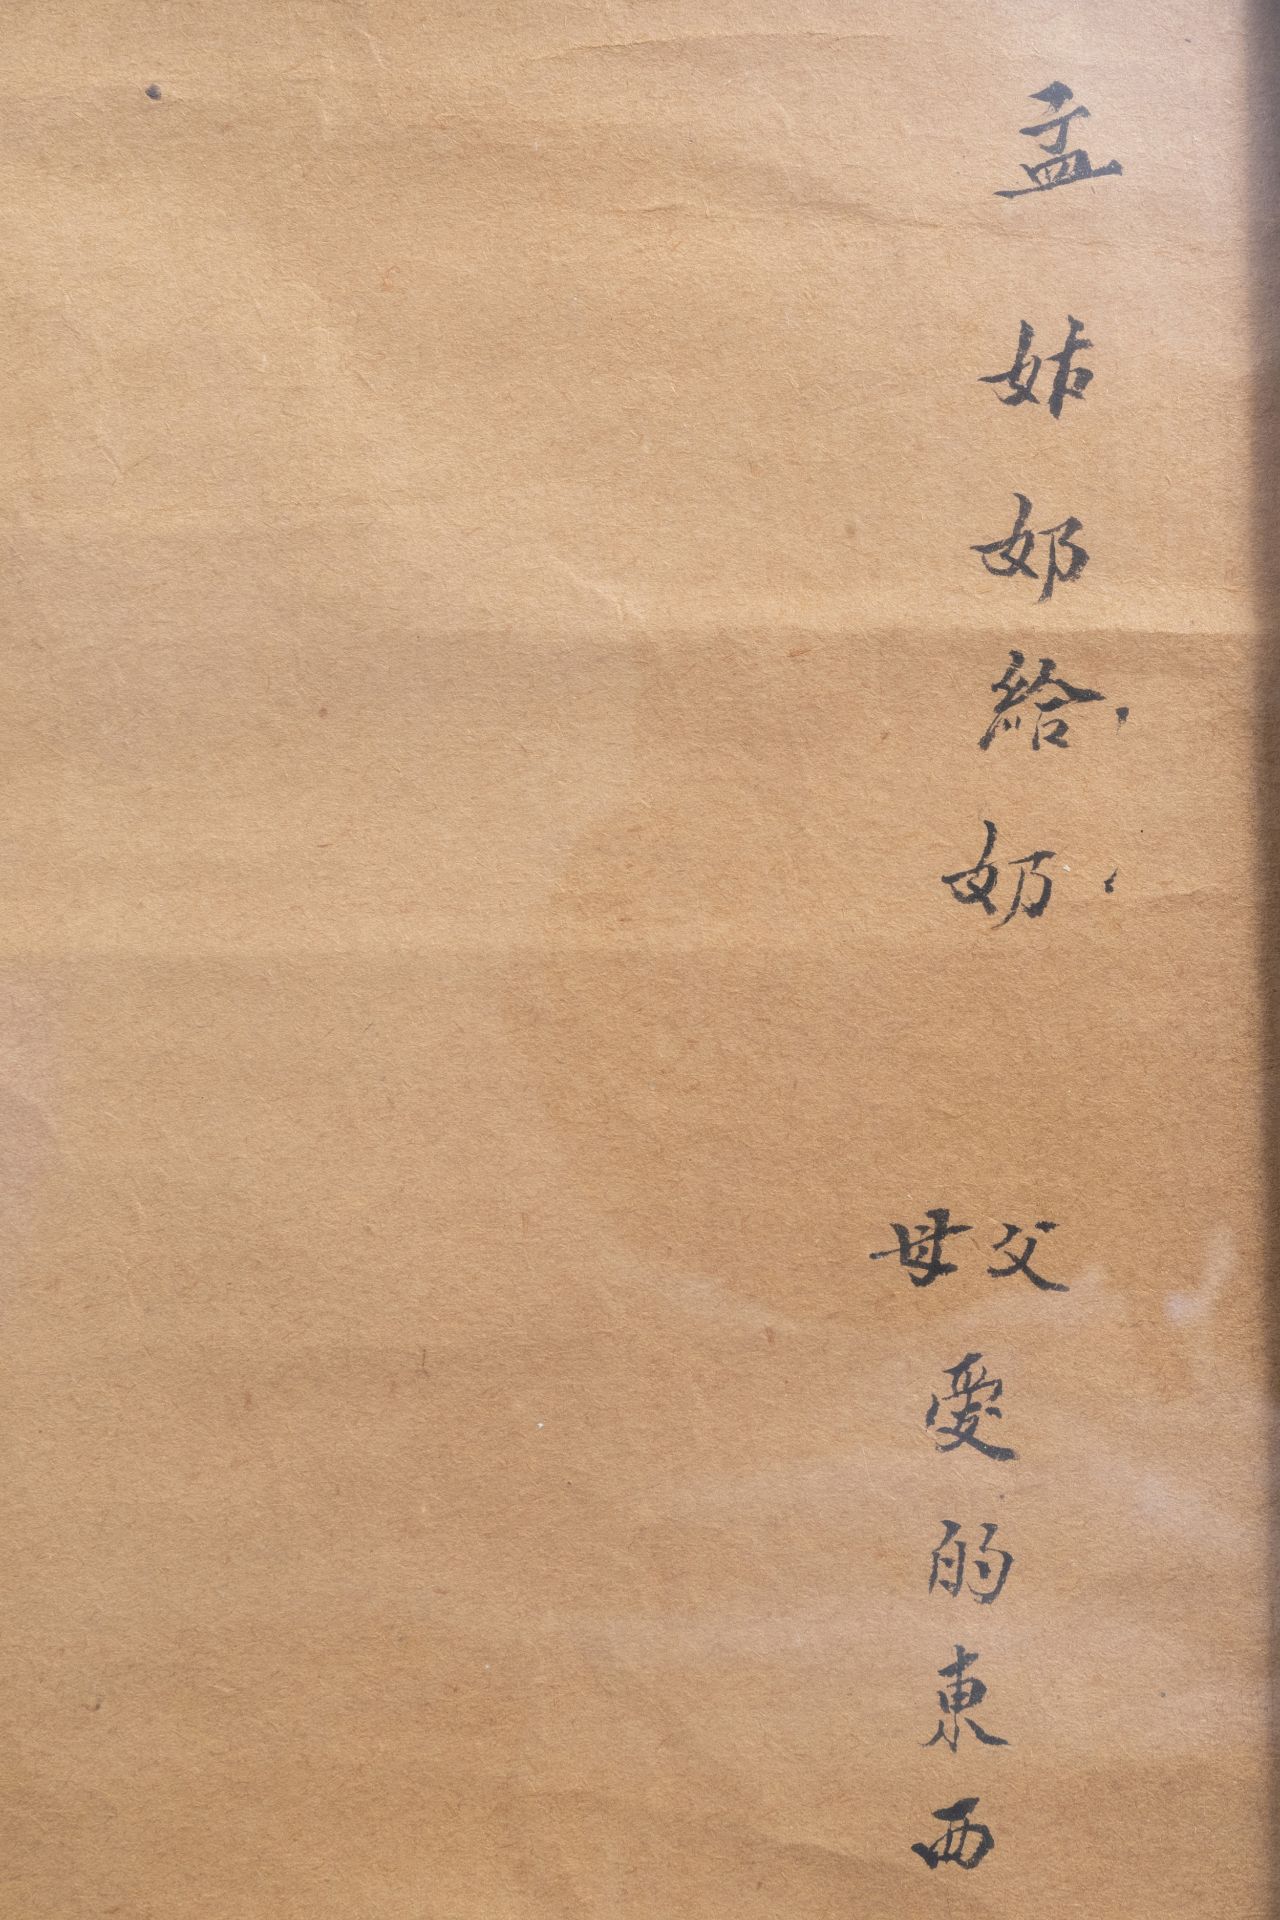 孟姑奶給奶父母愛的東西